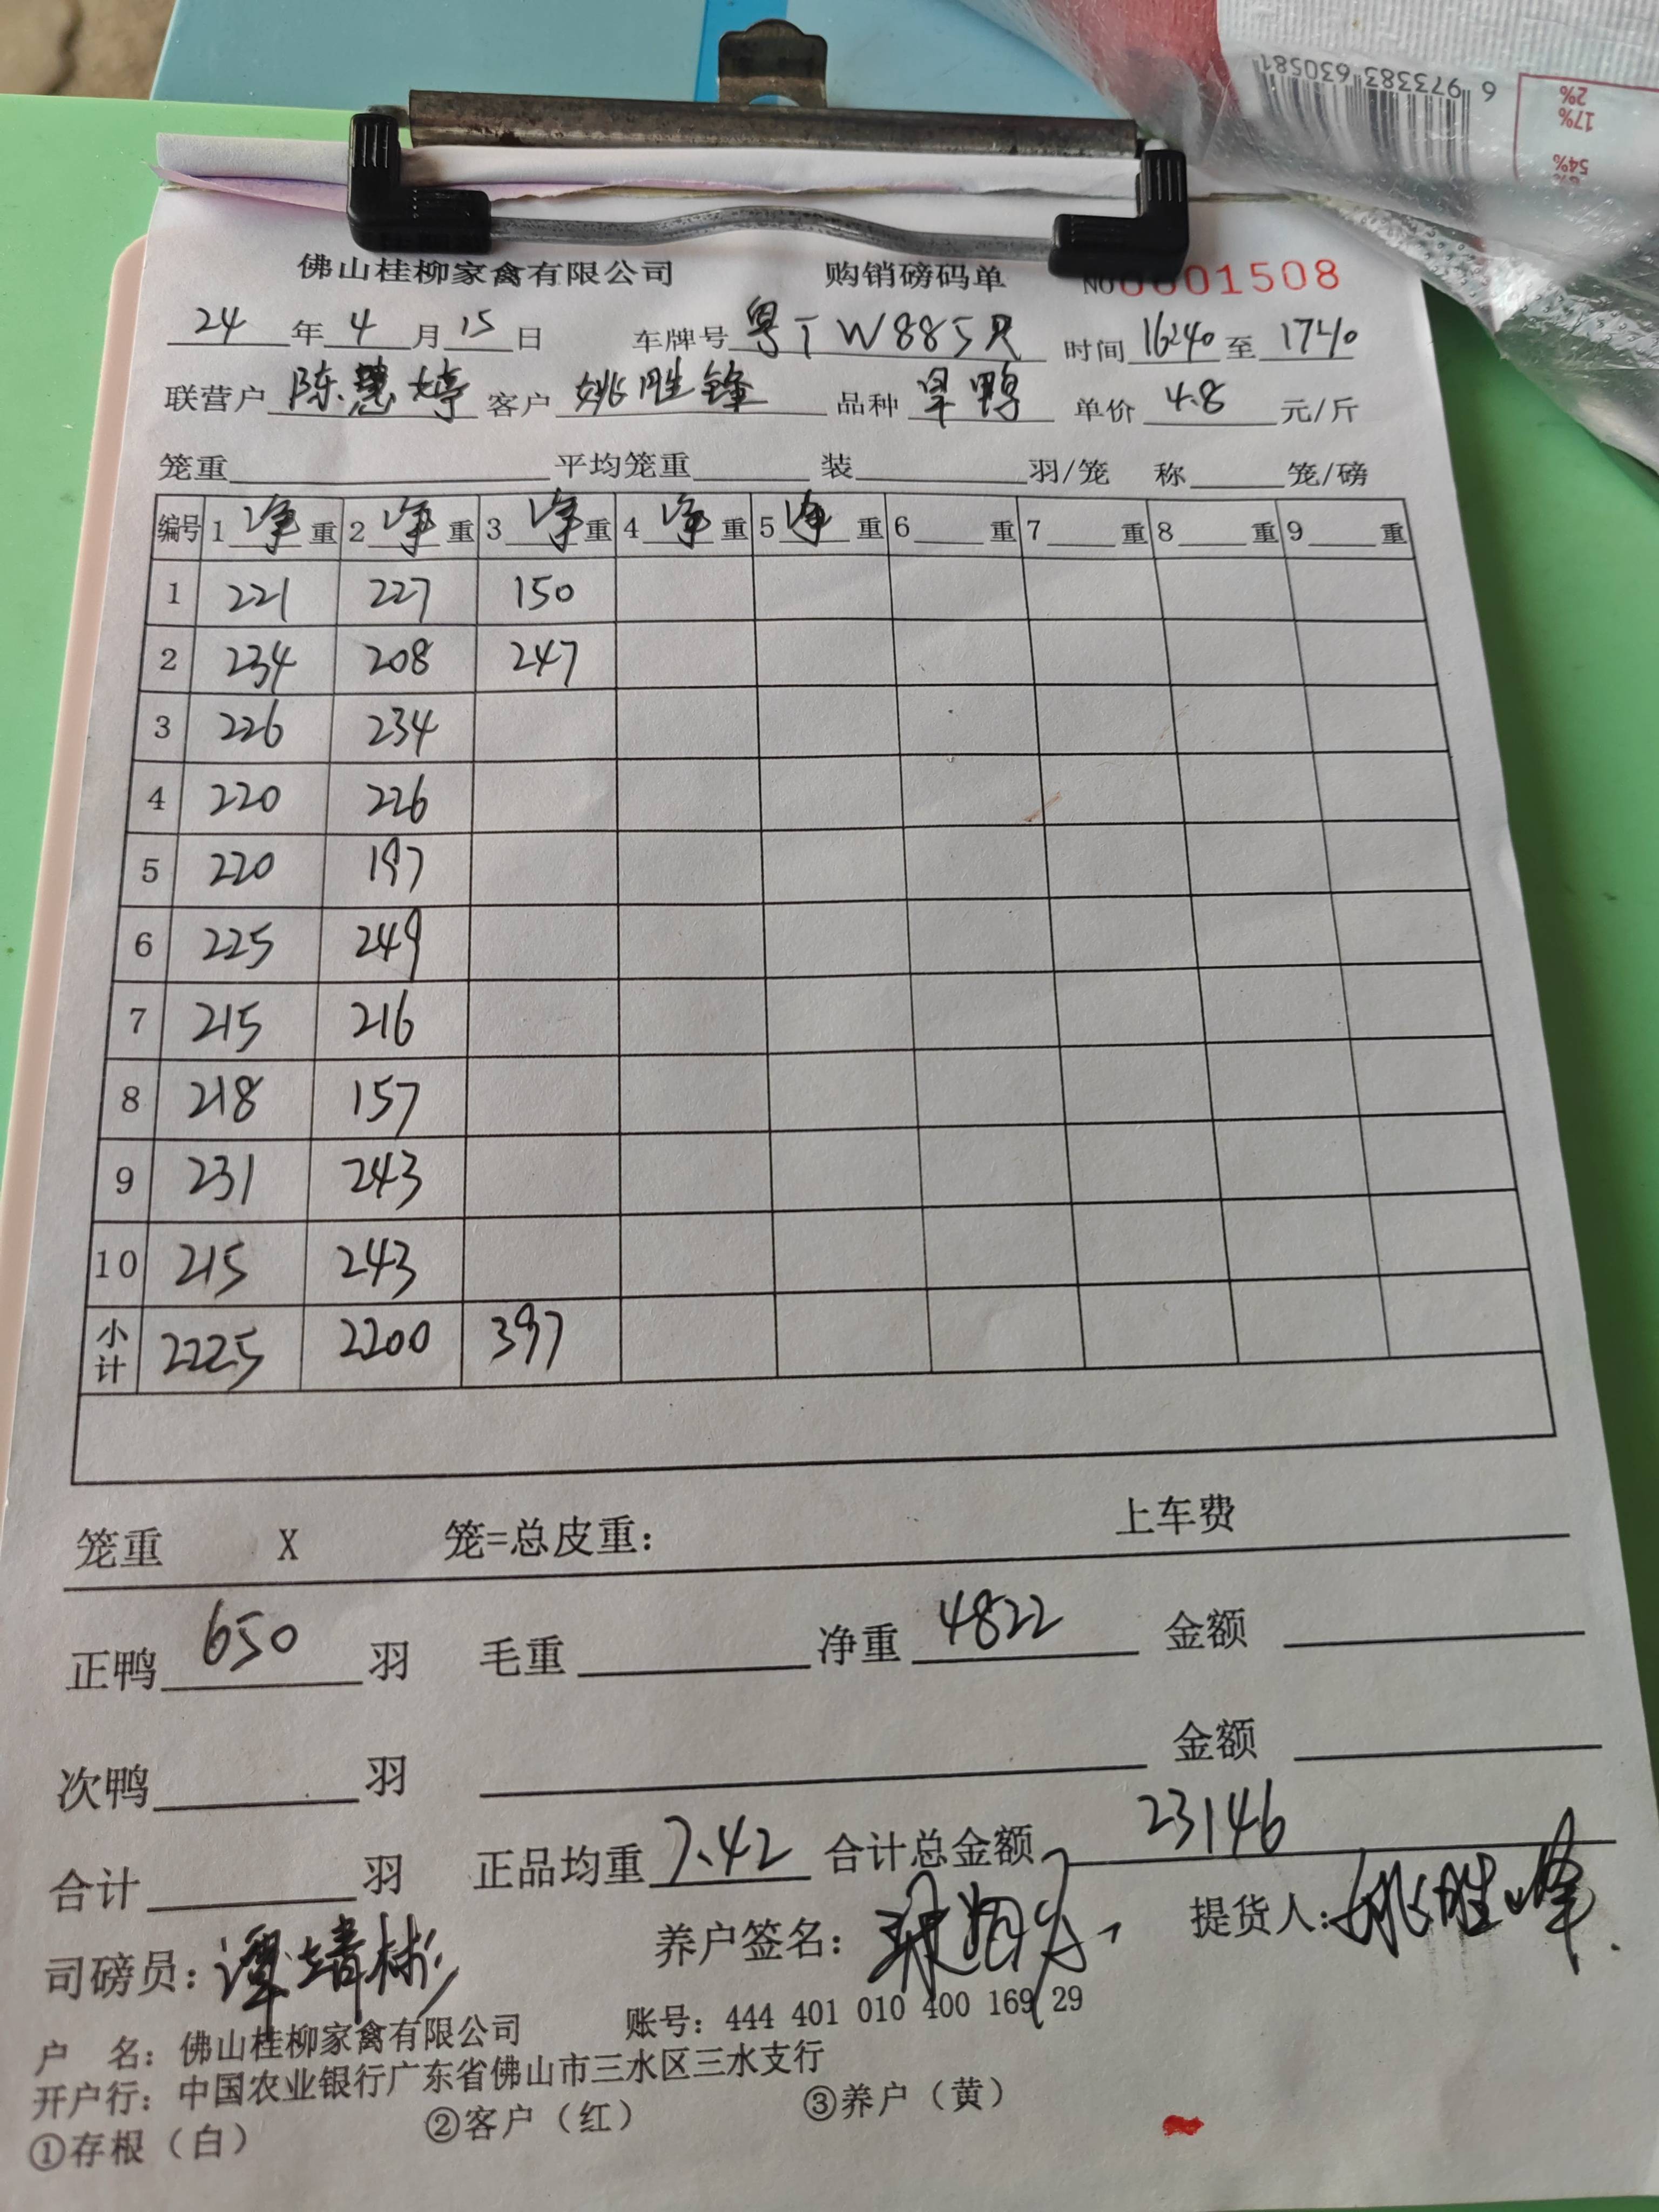 6 973383 630581
2%
17%
54%
佛山桂柳家禽有限公司 购销磅码单 NO 0001508
24 年 4 月 15 日 车牌号 粤TW885R 时间 16:40 至 17:10
联营户 陈慧婷 客户 姚胜锋 品种 旱鸭 单价 4.8 元/斤
笼重 平均笼重 装 羽/笼 称 笼/磅
编号 1 净 重 2 净 重 3 净 重 4 净 重 5 净 重 6 重 7 重 8 重 9 重
1 221 227 150
2 234 208 247
3 226 234
4 220 226
5 220 197
6 225 249
7 215 216
8 218 157
9 231 243
10 215 243
小计 2225 2200 397
笼重 X 笼=总皮重: 上车费
正鸭 650 羽 毛重 净重 4822 金额
次鸭 羽 金额
合计 羽 正品均重 7.42 合计总金额 23146
司磅员: 谭靖彬 养户签名: 提货人: 姚胜峰
户 名: 佛山桂柳家禽有限公司 账号: 444 401 010 400 169 29
开户行: 中国农业银行广东省佛山市三水区三水支行
①存根（白） ②客户（红） ③养户（黄）